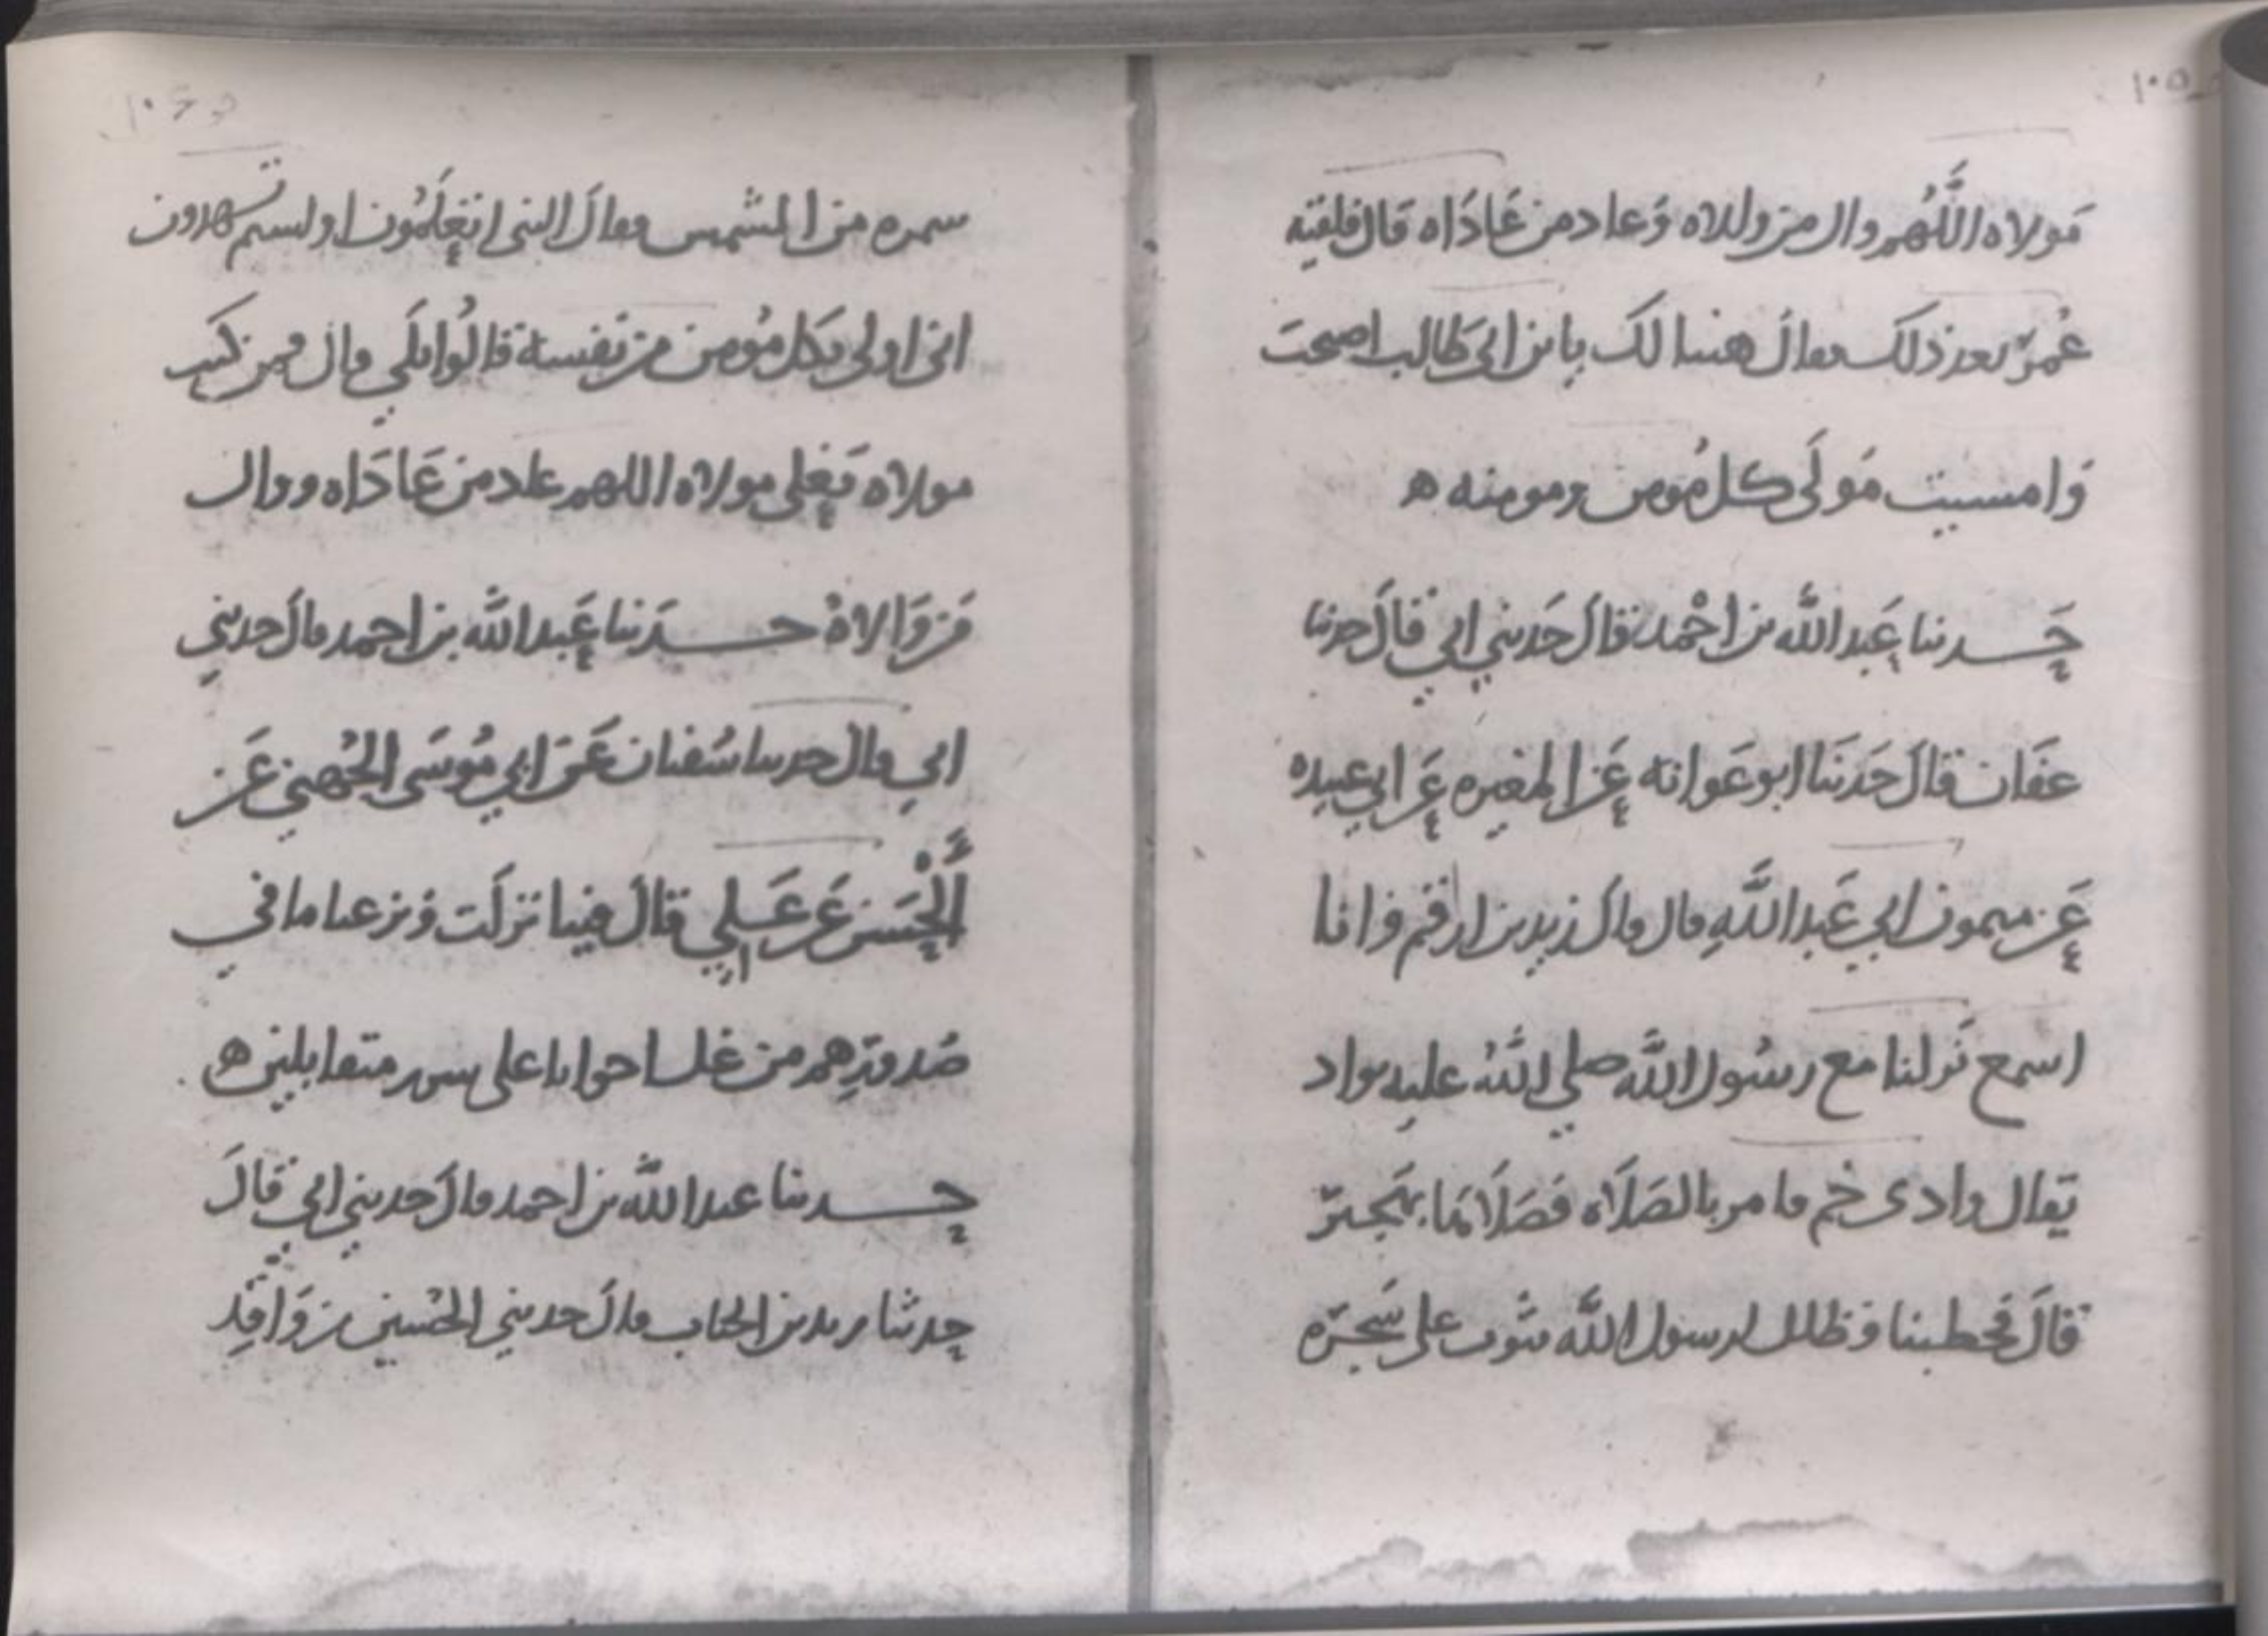 ١٠٥
مَولاه اللَّهُم وال من والاه وَعاد من عَادَاه قال فلقيه
عُمرّ بعد ذلك فقال هنيا لك يا بن ابى طَالب اصبحتَ
وَامسيت مَولَى كل مُومن ومومنه ه
حَدثنا عَبد الله بن احْمد قالَ حَدثني ابي قالَ حدثنا
عفَان قالَ حَدثنَا ابو عَوانه عَن المغيره عَن ابي عبيده
عَن ميمون ابي عَبد اللَّهِ قال قالَ زيد بن ارقم وانا
اسمع نَزلنا مع رسُول اللَّه صلي اللَّهُ عليه بواد
يقال وادى خُم فامر بالصَلَاه فصَلَاهَا بهَجير
قالَ فخطبنا وظلل لرسول اللَّه بثوب على شَجرَه
١٠٦
سمره من الشمس فقالَ النبى اتعلَمُون اولستم تشهدون
انى اولى بكل مُومن من نفسه قالُوا بلَى قال فمن كنت
مولاه فعَلى مولاه اللهم عاد من عَادَاه ووال
مَن وَالاهُ حدَثنا عَبد اللَّه بن احمد قالَ حدثني
ابي قالَ حدثنا سُفيان عَن ابي مُوسَى الجُهني عَن
الْحَسَن عَن عَلي قالَ فينا نزلَت وَنزعنا ما في
صُدورِهم من غل اخوانا على سرر متقابلين ه
حدثنا عبد اللَّه بن احمد قالَ حدثني ابي قالَ
حدثنا زيد بن الحباب قالَ حدثني الحُسين بن وَاقِد